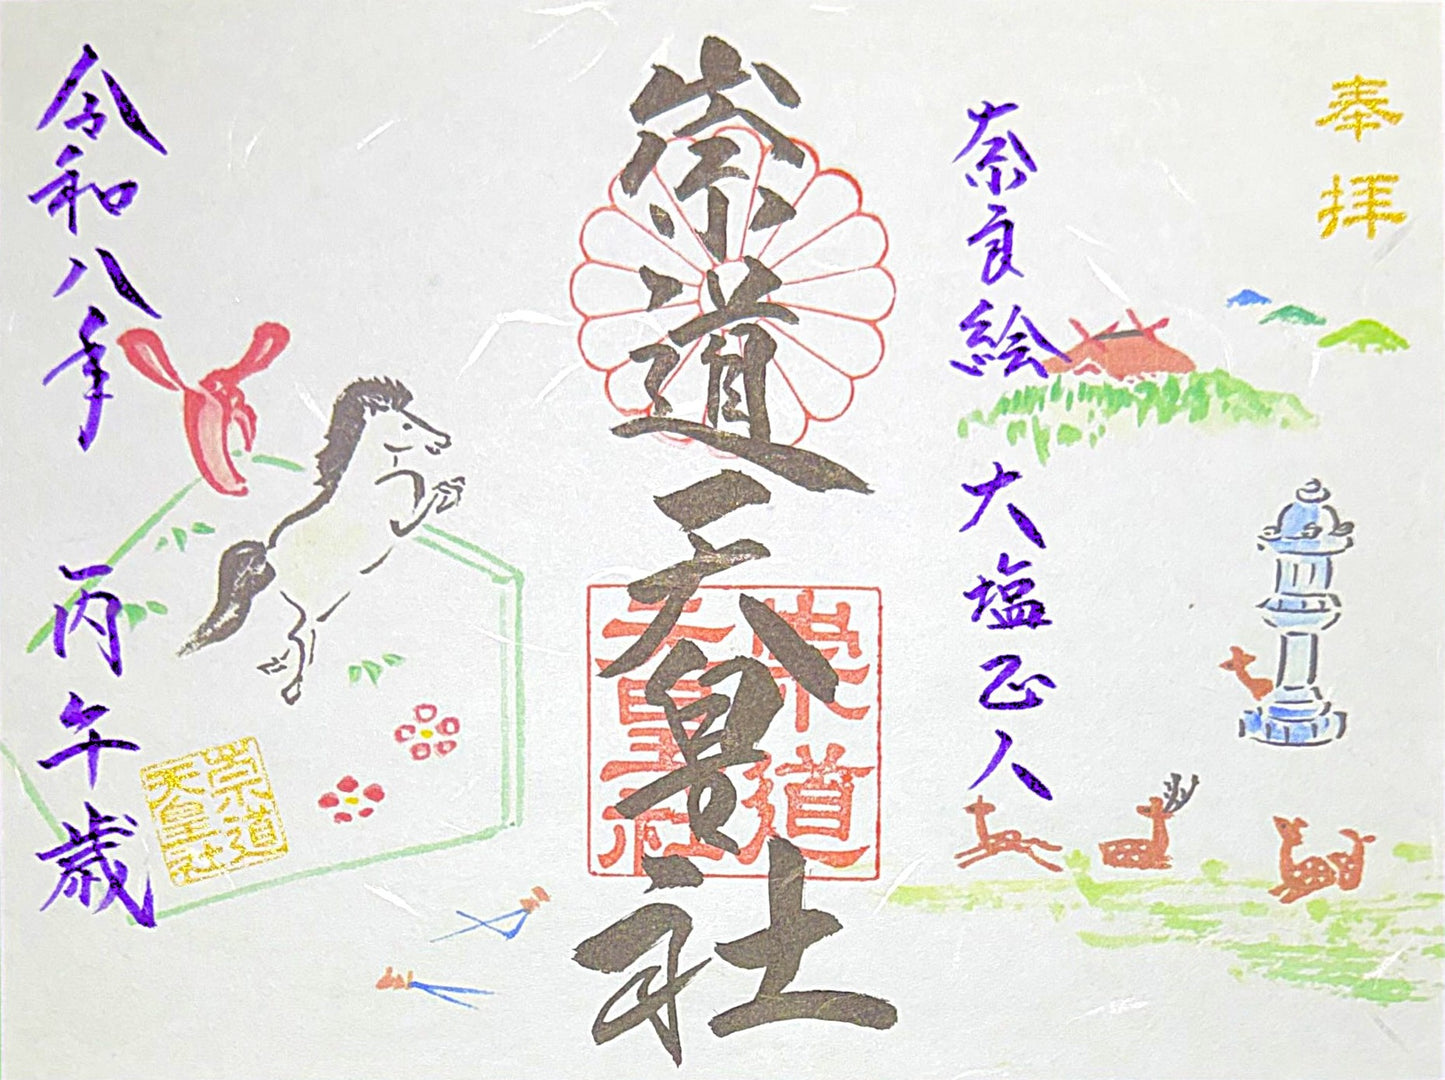 奉拝
奈良絵 大塩正人
崇道天皇社
崇道
天皇社
令和八年 丙午歳
崇道
天皇社